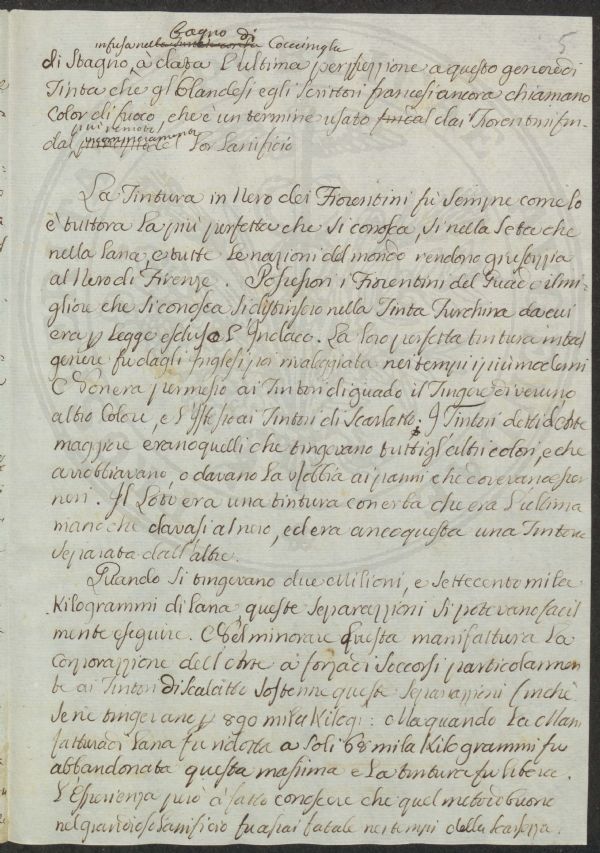 5
Bagno di
infusa nella Cocciniglia
di Stagno, à data l'ultima perffezzione a questo genere di
Tinta che gl'Olandesi e gli Scrittori francesi ancora chiamano
Color di fuoco, che è un termine usato dai Fiorentini fin
più remota
dal del Lor Lanificio
La Tintura in Nero dei Fiorentini fù sempre come lo
è tuttora la più perfetta che si conosca, si nella Seta che
nella Lana, e tutte le nazioni del mondo rendono giustizia
al Nero di Firenze. Possessori i Fiorentini del Guado il mi-
gliore che si conosca si distinsero nella Tinta Turchina da cui
era p Legge escluso l'Indaco. La loro perfetta tintura in tal
genere fu dagli Inglesi poi rivaleggiata nei tempi i più moderni
E non era permesso ai Tintori di guado il Tingere di veruno
altro Colore, e l'istesso ai Tintori di Scarlatto; I Tintori detti d'Arte
maggiore erano quelli che tingevano tutti gl'altri colori, e che
arrobbiavano, o davano la robbia ai panni che dovevano esser
neri. Il Loto era una tintura con erba che era l'ultima
mano che davasi al nero, ed era anco questa una Tintura
Separata dall'altre.
Quando si tingevano due Milioni, e settecento mila
Kilogrammi di Lana queste separazzioni si potevano facil
mente eseguire. Nel minorare questa manifattura la
Corporazzione dell'Arte à forza di soccorsi particolarmen
te ai Tintori di Scarlatto sostenne queste separazzioni finchè
se ne tingevano p 890 mila Kilogi: Ma quando la Man
fattura di Lana fu ridotta a soli 68 mila Kilogrammi fu
abbandonata questa massima e la tintura fu libera.
L'Esperienza però à fatto conoscere che quel metodo buono
nel grandioso Lanificio fu assai fatale nei tempi della scarsezza.